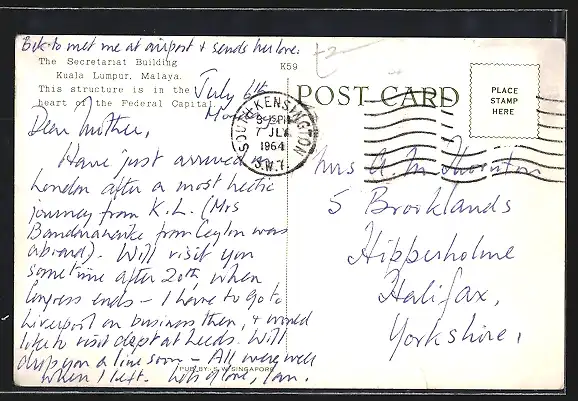 Bek to met me at airport & sends her love.
The Secretariat Building
Kuala Lumpur, Malaya.
This structure is in the
heart of the Federal Capital.
K59
POST CARD
PLACE
STAMP
HERE
SOUTH KENSINGTON
8-15PM
7 JLY
1964
S.W.7.
July 6th
Dear Mother,
Have just arrived in
London after a most hectic
journey from K.L. (Mrs
Bandaranaike from Ceylon was
aboard). Will visit you
sometime after 20th, when
Congress ends – I have to go to
Liverpool on business then, & would
like to visit dept at Leeds. Will
drop you a line soon – All were well
when I left. Lots of love, Ian.
PUB. BY: S.W. SINGAPORE
Mrs A. M. Thornton
5 Brooklands
Hipperholme
Halifax,
Yorkshire,